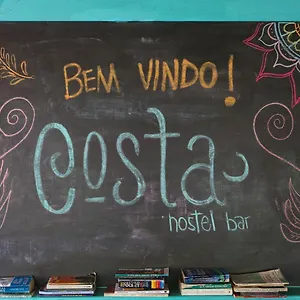 BEM VINDO!
Costa
hostel bar